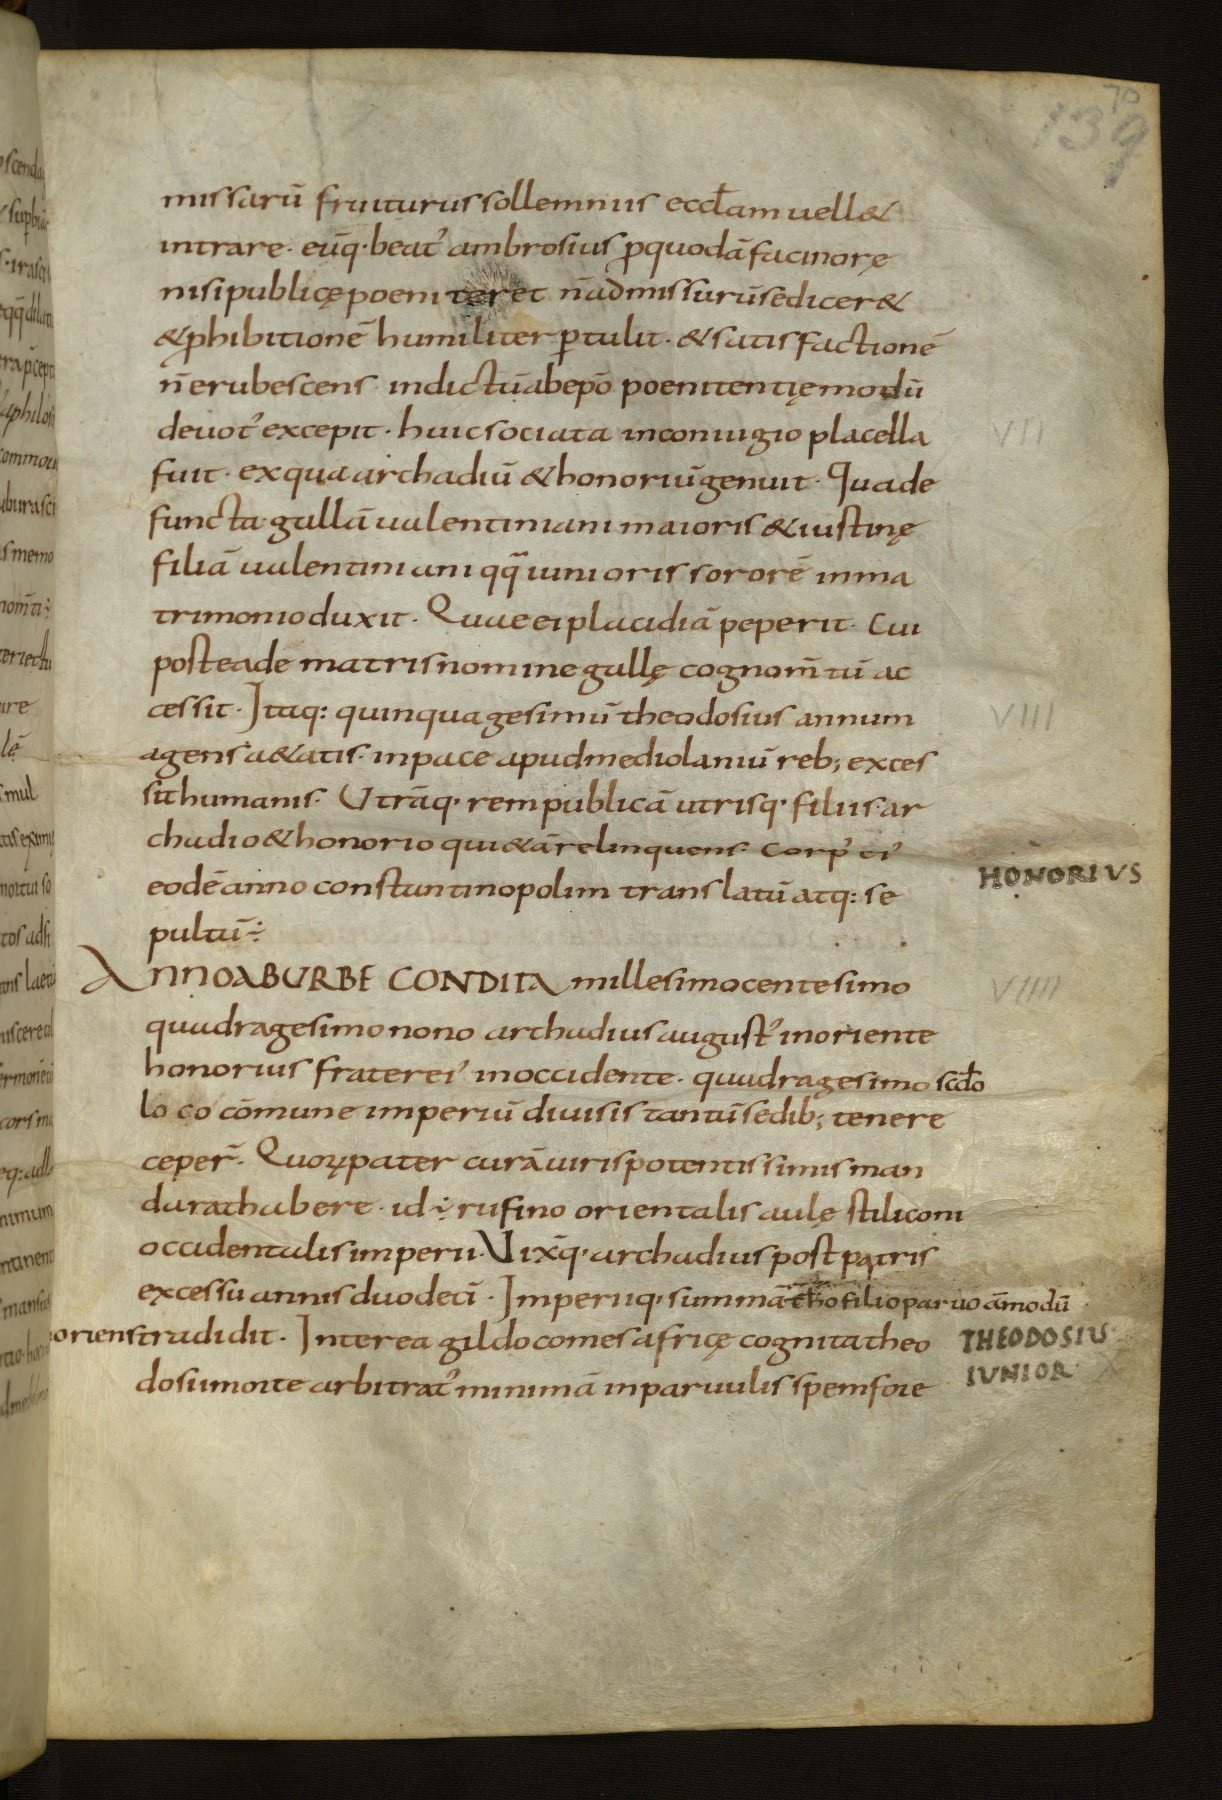 70
139
missarū fruiturus sollemniis eccł̄am uell&
intrare· eūq· beat᾽ ambrosius ꝓ quodā facinorę
nisi publicę poeniteret n̄ admissurū se dicer&
& ꝓhibitionē humiliter ꝑtulit· & satisfactionē
n̄ erubescens indictū ab ep̄o poenitentię modū
deuot᾽ excepit· huic sociata in coniugio placella
VII
fuit· ex qua archadiū & honoriū genuit· Qua de
functa gallā ualentiniani maioris & iustinę
filiā ualentiniani qq̄ iunioris sororē in ma
trimonio duxit· Quae ei placidiā peperit· Cui
postea de matris nomine gallę cognom̄tū ac
cessit· Itaq: quinquagesimū theodosius annum
VIII
agens a&atis· in pace apud mediolaniū reb; exces
sit humanis· Utrāq· rem publicā utrisq· filiis· ar
chadio & honorio qui&ā relinquens· Corp᾽ ei᾽
eodē anno constantinopolim translatū atq: se
HONORIVS
pultū·:·
ANNO AB URBE CONDITA millesimo centesimo
VIIII
quadragesimo nono archadius august᾽ in oriente
honorius frater ei᾽ in occidente· quadragesimo sc̄do
lo co cōmune imperiū diuisis tantū sedib; tenere
ceper̄· Quoꝝ pater curā uiris potentissimis man
darat habere· id ÷ rufino orientalis aulę stiliconi
occidentalis imperii· Vix̄q· archadius post patris
excessu annis duodeci̅· Imperiiq· summā th̄o filio paruo ām̄odū
oriens tradidit· Interea gildo comes africę cognita theo
THEODOSIUS
IVNIOR X
dosii morte arbitrat᾽ minimā in paruulis spem fore